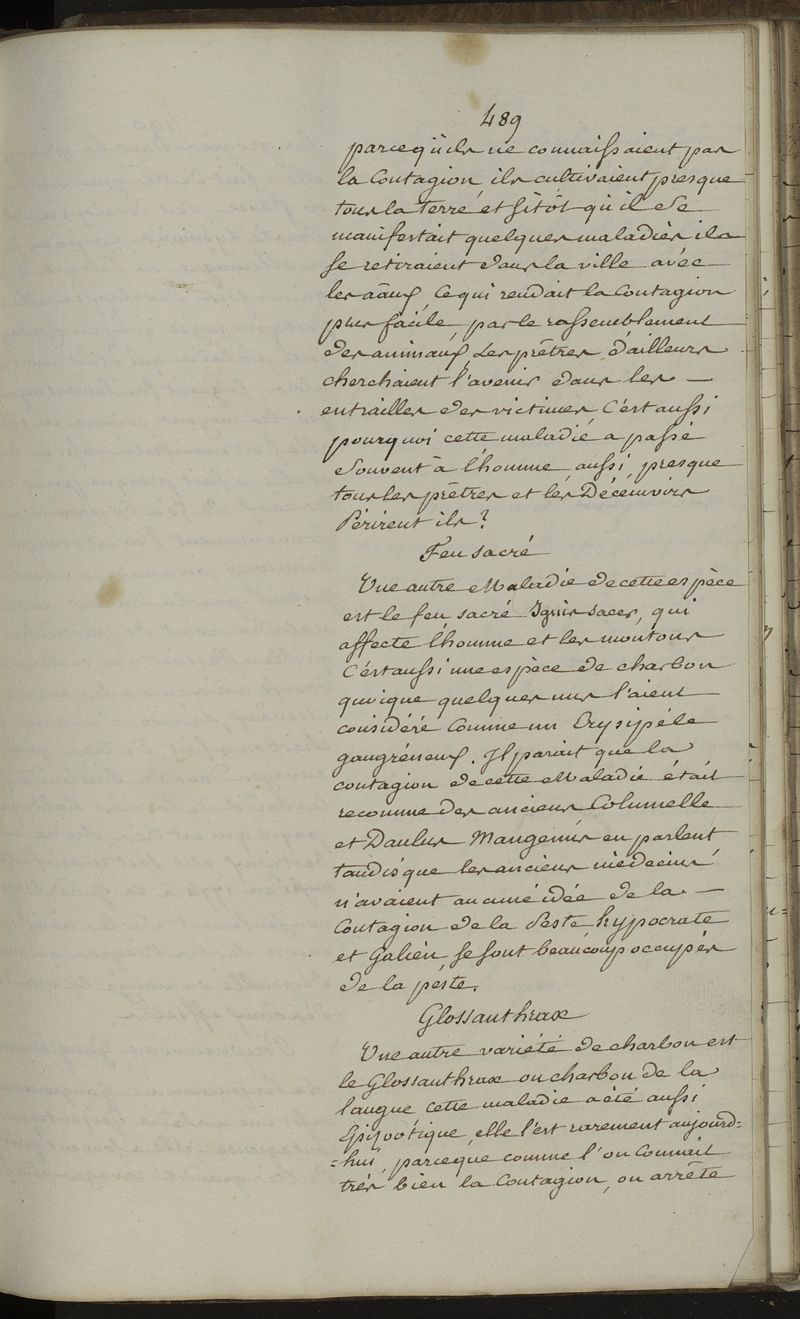 489
parcequ'ils ne connaissaient pas
la Contagion, ils cultivaient presque
tous la terre et sitôt qu'il se
manifestait quelques maladies ils
se retiraient dans la ville avec
les aâux, ce qui rendait la Contagion
plus facile, par le rassemblement
des animaux, Les prêtres d'ailleurs
cherchaient l'avenir dans les —
entrailles des victimes C'est aussi
pourquoi cette maladie a passé
souvent à l'homme, aussi, presque
tous les prêtres et les Décemvirs
Périrent ils?
Feu sacré
Une autre Maladie de cette espèce
est le feu sacré Ignis sacer, qui
affecte l'homme et les moutons
C'est aussi une espèce de charbon
quoique quelques uns l'aient
considéré Comme un Erysipéle
gangréneux. Il parait que la
contagion de cette Maladie était
reconnue des anciens Columelle
et Daulus Mangenus en parlent
tandis que les anciens médecins
n'avaient aucune idée de la —
Contagion de la Peste hypocrate
et Galien se sont beaucoup occupés
de la peste.
Glossanthrax
Une autre variété de charbon est
le Glossanthrax ou charbon de la
langue cette maladie a été aussi
Epizoótique, elle l'est rarement aujourd=
=hui, parceque comme l'on Connait
très bien la Contagion, on arrête